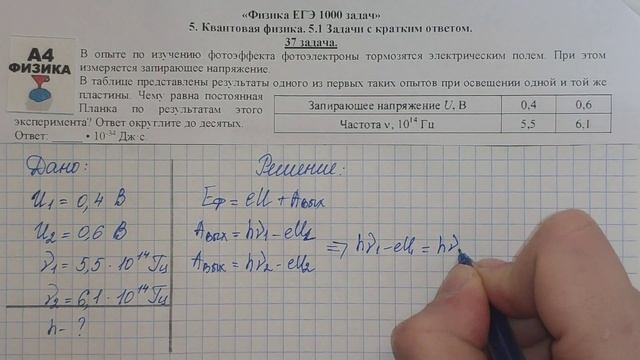 «Физика ЕГЭ 1000 задач»
5. Квантовая физика. 5.1 Задачи с кратким ответом.
37 задача.
А4
ФИЗИКА
В опыте по изучению фотоэффекта фотоэлектроны тормозятся электрическим полем. При этом
измеряется запирающее напряжение.
В таблице представлены результаты одного из первых таких опытов при освещении одной и той же
пластины. Чему равна постоянная
Планка по результатам этого
эксперимента? Ответ округлите до десятых.
Ответ: _____ • 10⁻³⁴ Дж·с.
Запирающее напряжение U, В 0,4 0,6
Частота ν, 10¹⁴ Гц 5,5 6,1
Дано:
U₁ = 0,4 В
U₂ = 0,6 В
ν₁ = 5,5 · 10¹⁴ Гц
ν₂ = 6,1 · 10¹⁴ Гц
h - ?
Решение:
Eф = eU + Aвых
Aвых = hν₁ - eU₁
Aвых = hν₂ - eU₂
⇒ hν₁ - eU₁ = hν